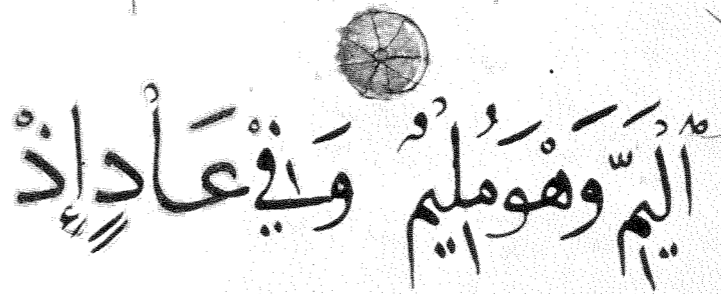 ٱلْيَمِّ وَهْوَ مُلِيمٌ وَفِي عَادٍ إِذْ